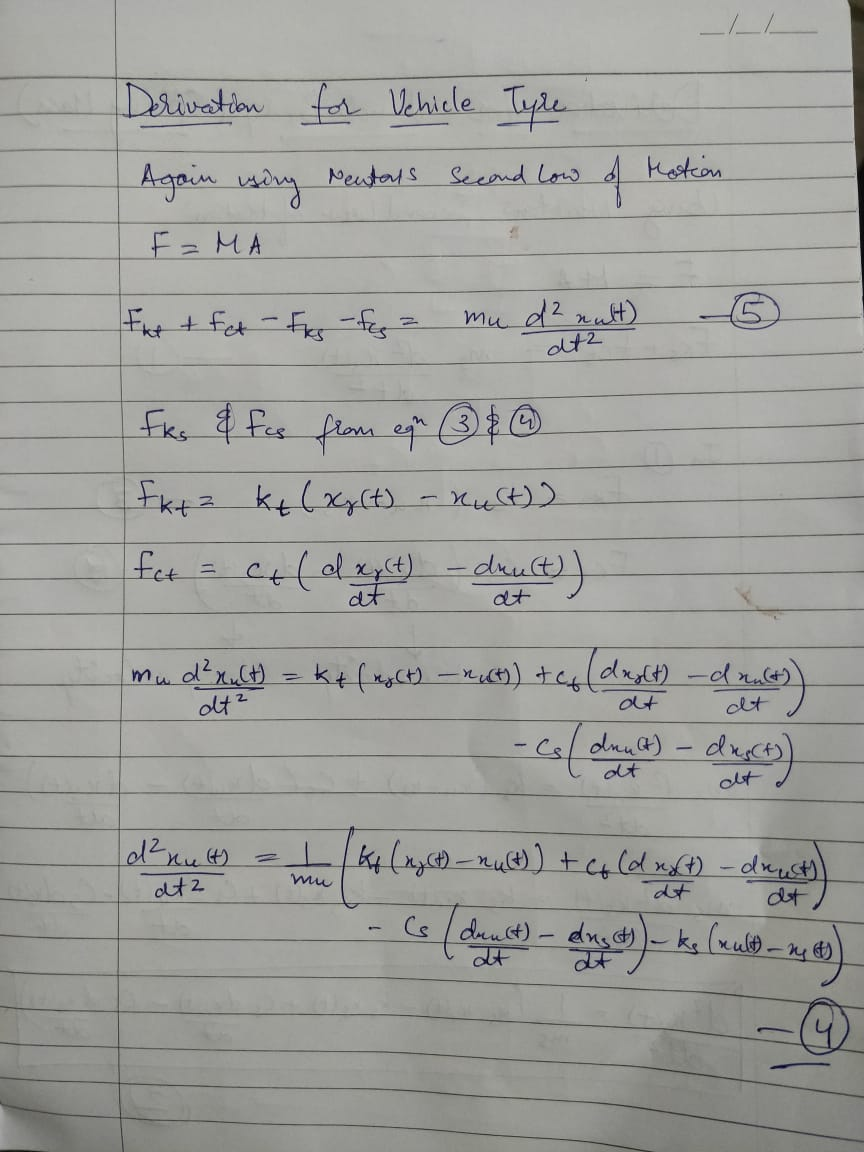 _/_/_
Derivation for Vehicle Tyre
Again using Newtons Second Low of Motion
F = MA
Fkt + fct - Fks - fcs = mu d² xu(t)/dt² - ⑤
Fks & fcs from eqⁿ ③ & ④
Fkt = kt (xr(t) - xu(t))
fct = ct (d xr(t)/dt - dxu(t)/dt)
mu d²xu(t)/dt² = kt (xr(t) - xu(t)) + ct (dxr(t)/dt - d xu(t)/dt)
- cs (dxu(t)/dt - dxs(t)/dt)
d²xu(t)/dt² = 1/mu (kt (xr(t) - xu(t)) + ct (d xr(t)/dt - dxu(t)/dt)
- cs (dxu(t)/dt - dxs(t)/dt) - ks (xu(t) - xs(t))
- ④